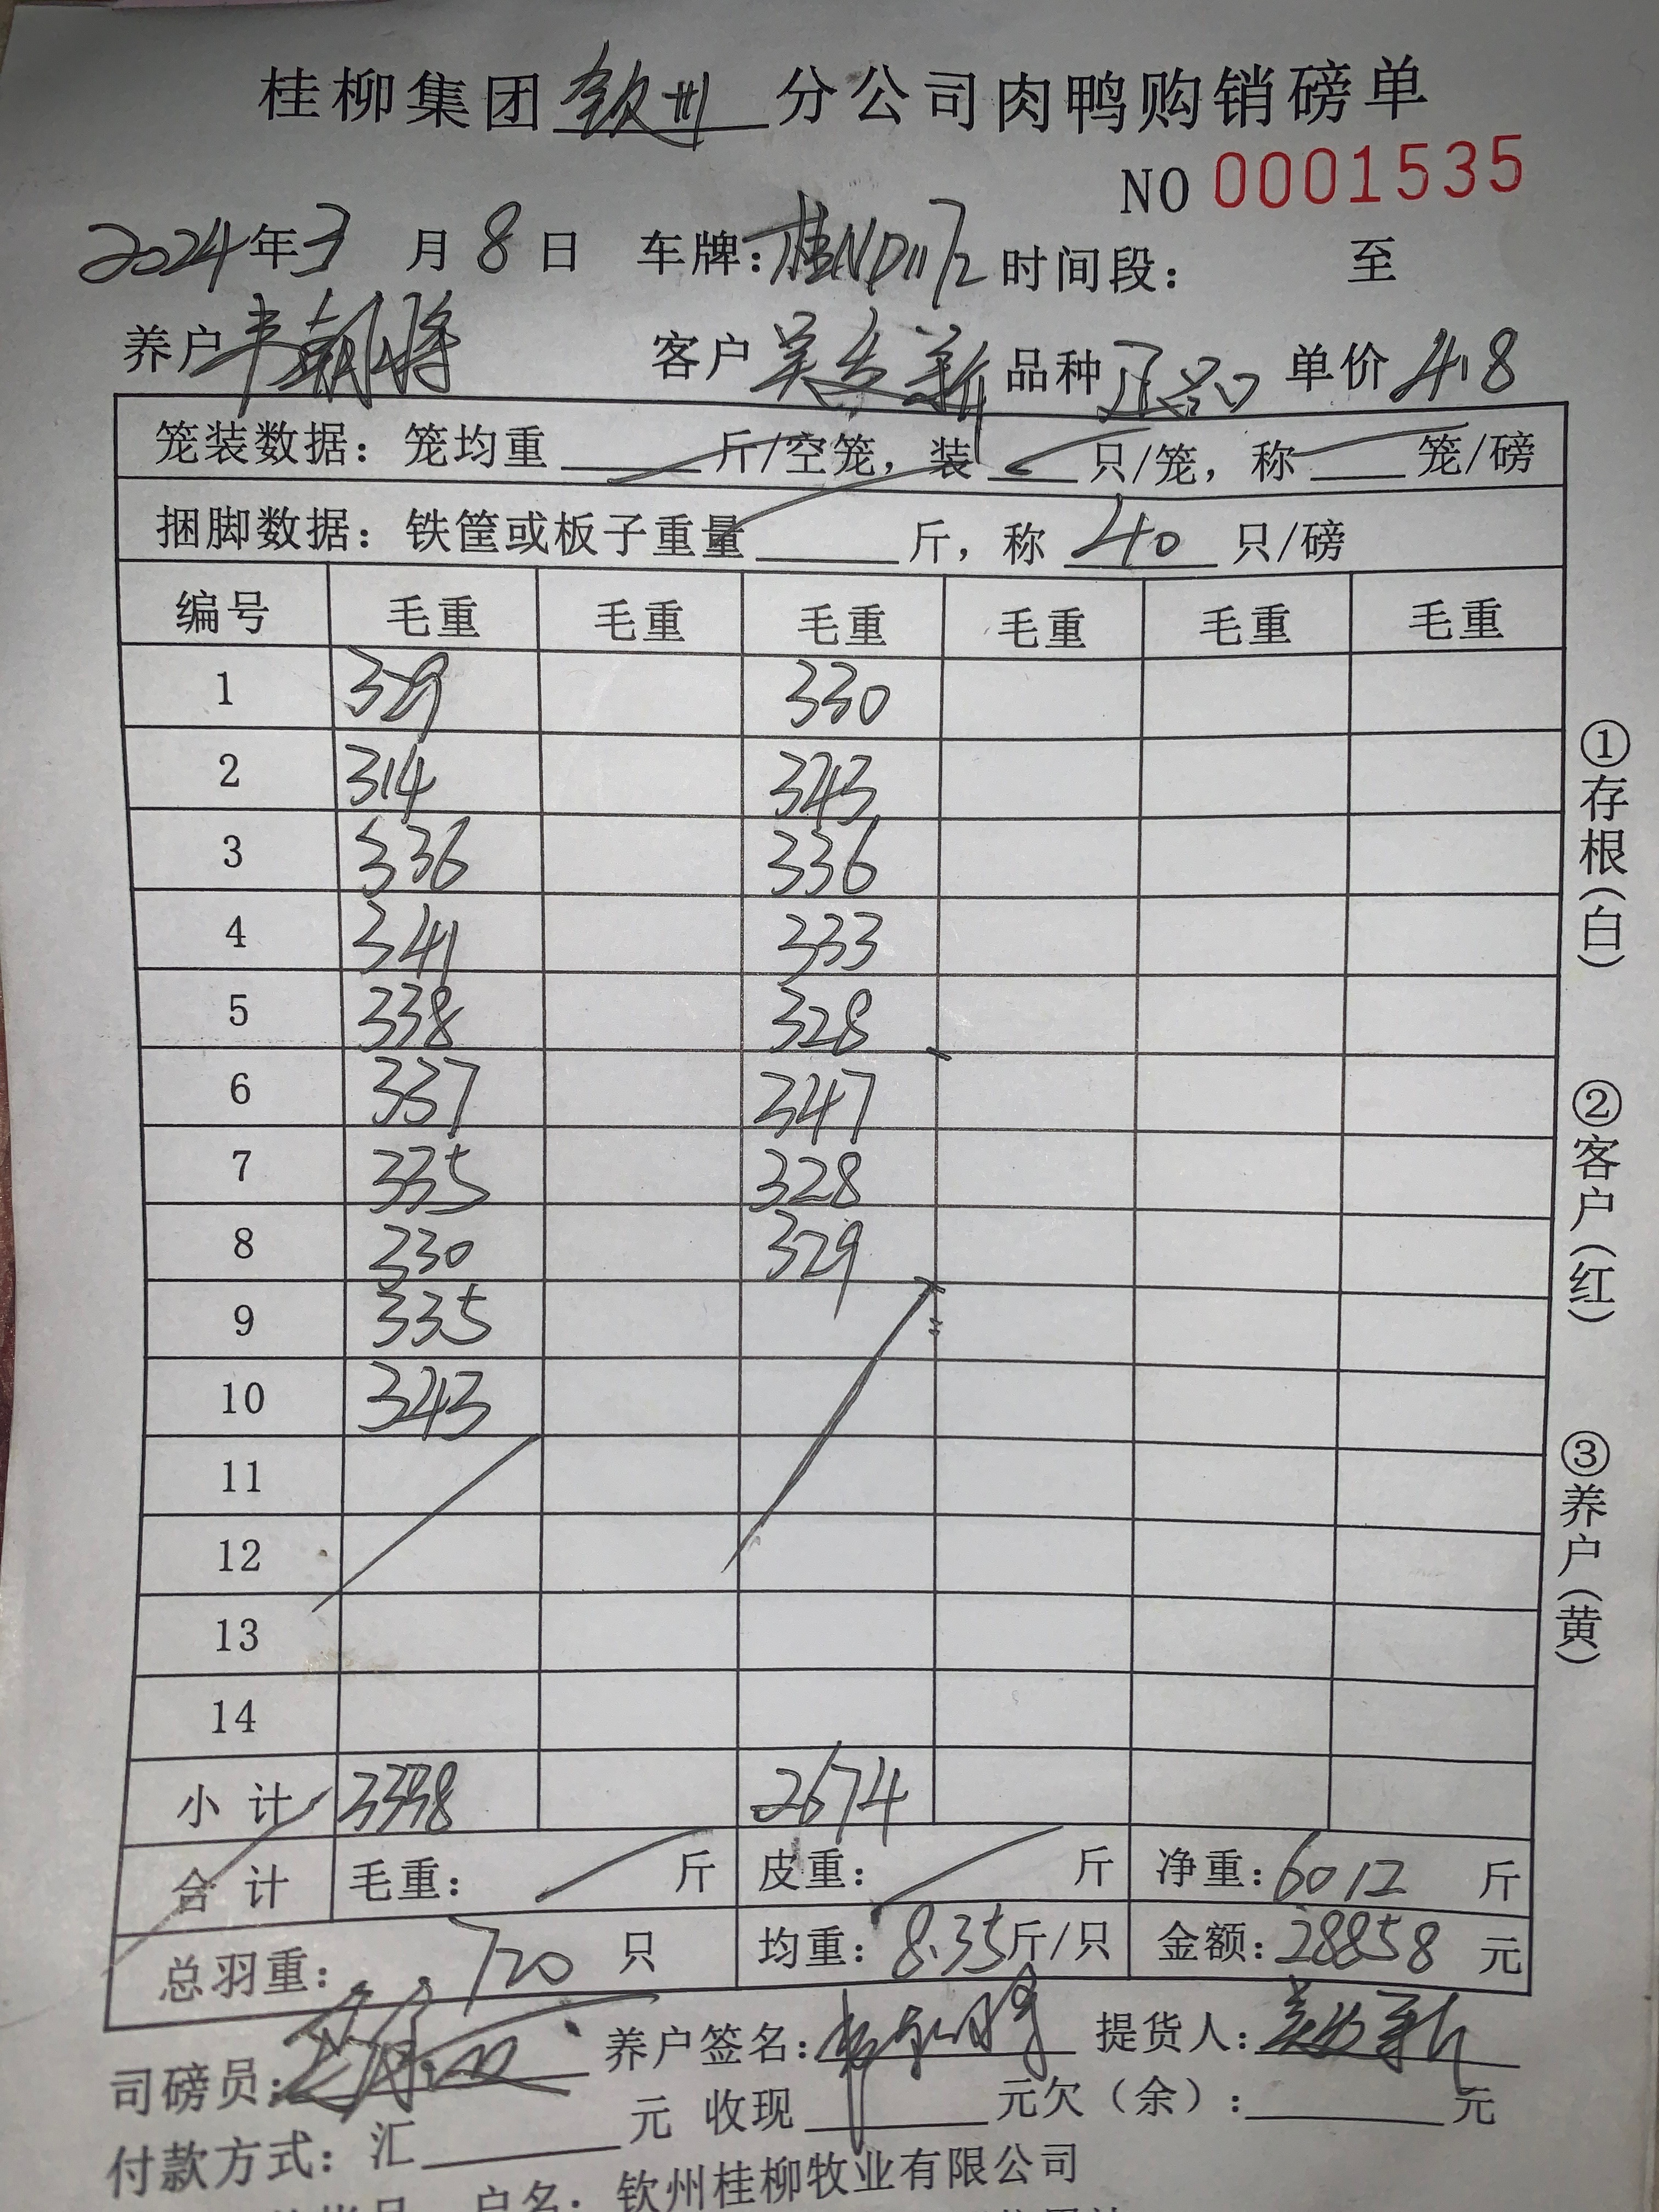 桂柳集团 钦州 分公司肉鸭购销磅单
NO 0001535
2024年3月8日 车牌:桂ND1172 时间段: 至
养户 客户 吴 新 品种 正品 单价 4.8
笼装数据: 笼均重____斤/空笼, 装____只/笼, 称____笼/磅
捆脚数据: 铁筐或板子重量____斤, 称 40 只/磅
编号 毛重 毛重 毛重 毛重 毛重 毛重
1 329 330
2 314 343
3 336 336
4 341 333
5 338 328
6 337 347
7 335 328
8 330 329
9 335
10 343
11
12
13
14
小计 3338 2674
合计 毛重: 斤 皮重: 斤 净重:6012 斤
总羽重: 720 只 均重: 8.35斤/只 金额:28858 元
司磅员: 养户签名: 提货人:
付款方式: 汇____元 收现____元欠(余):____元
户名: 钦州桂柳牧业有限公司
①存根(白)
②客户(红)
③养户(黄)